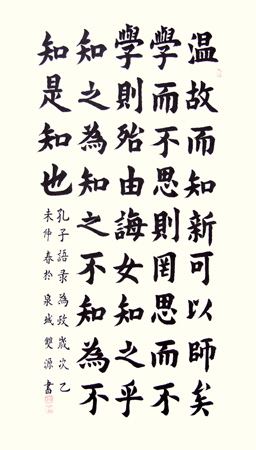 温故而知新可以師矣
學而不思則罔思而不
學則殆由誨女知之乎
知之為知之不知為不
知是知也
孔子語录為政歲次乙
未仲春於泉城雙源書